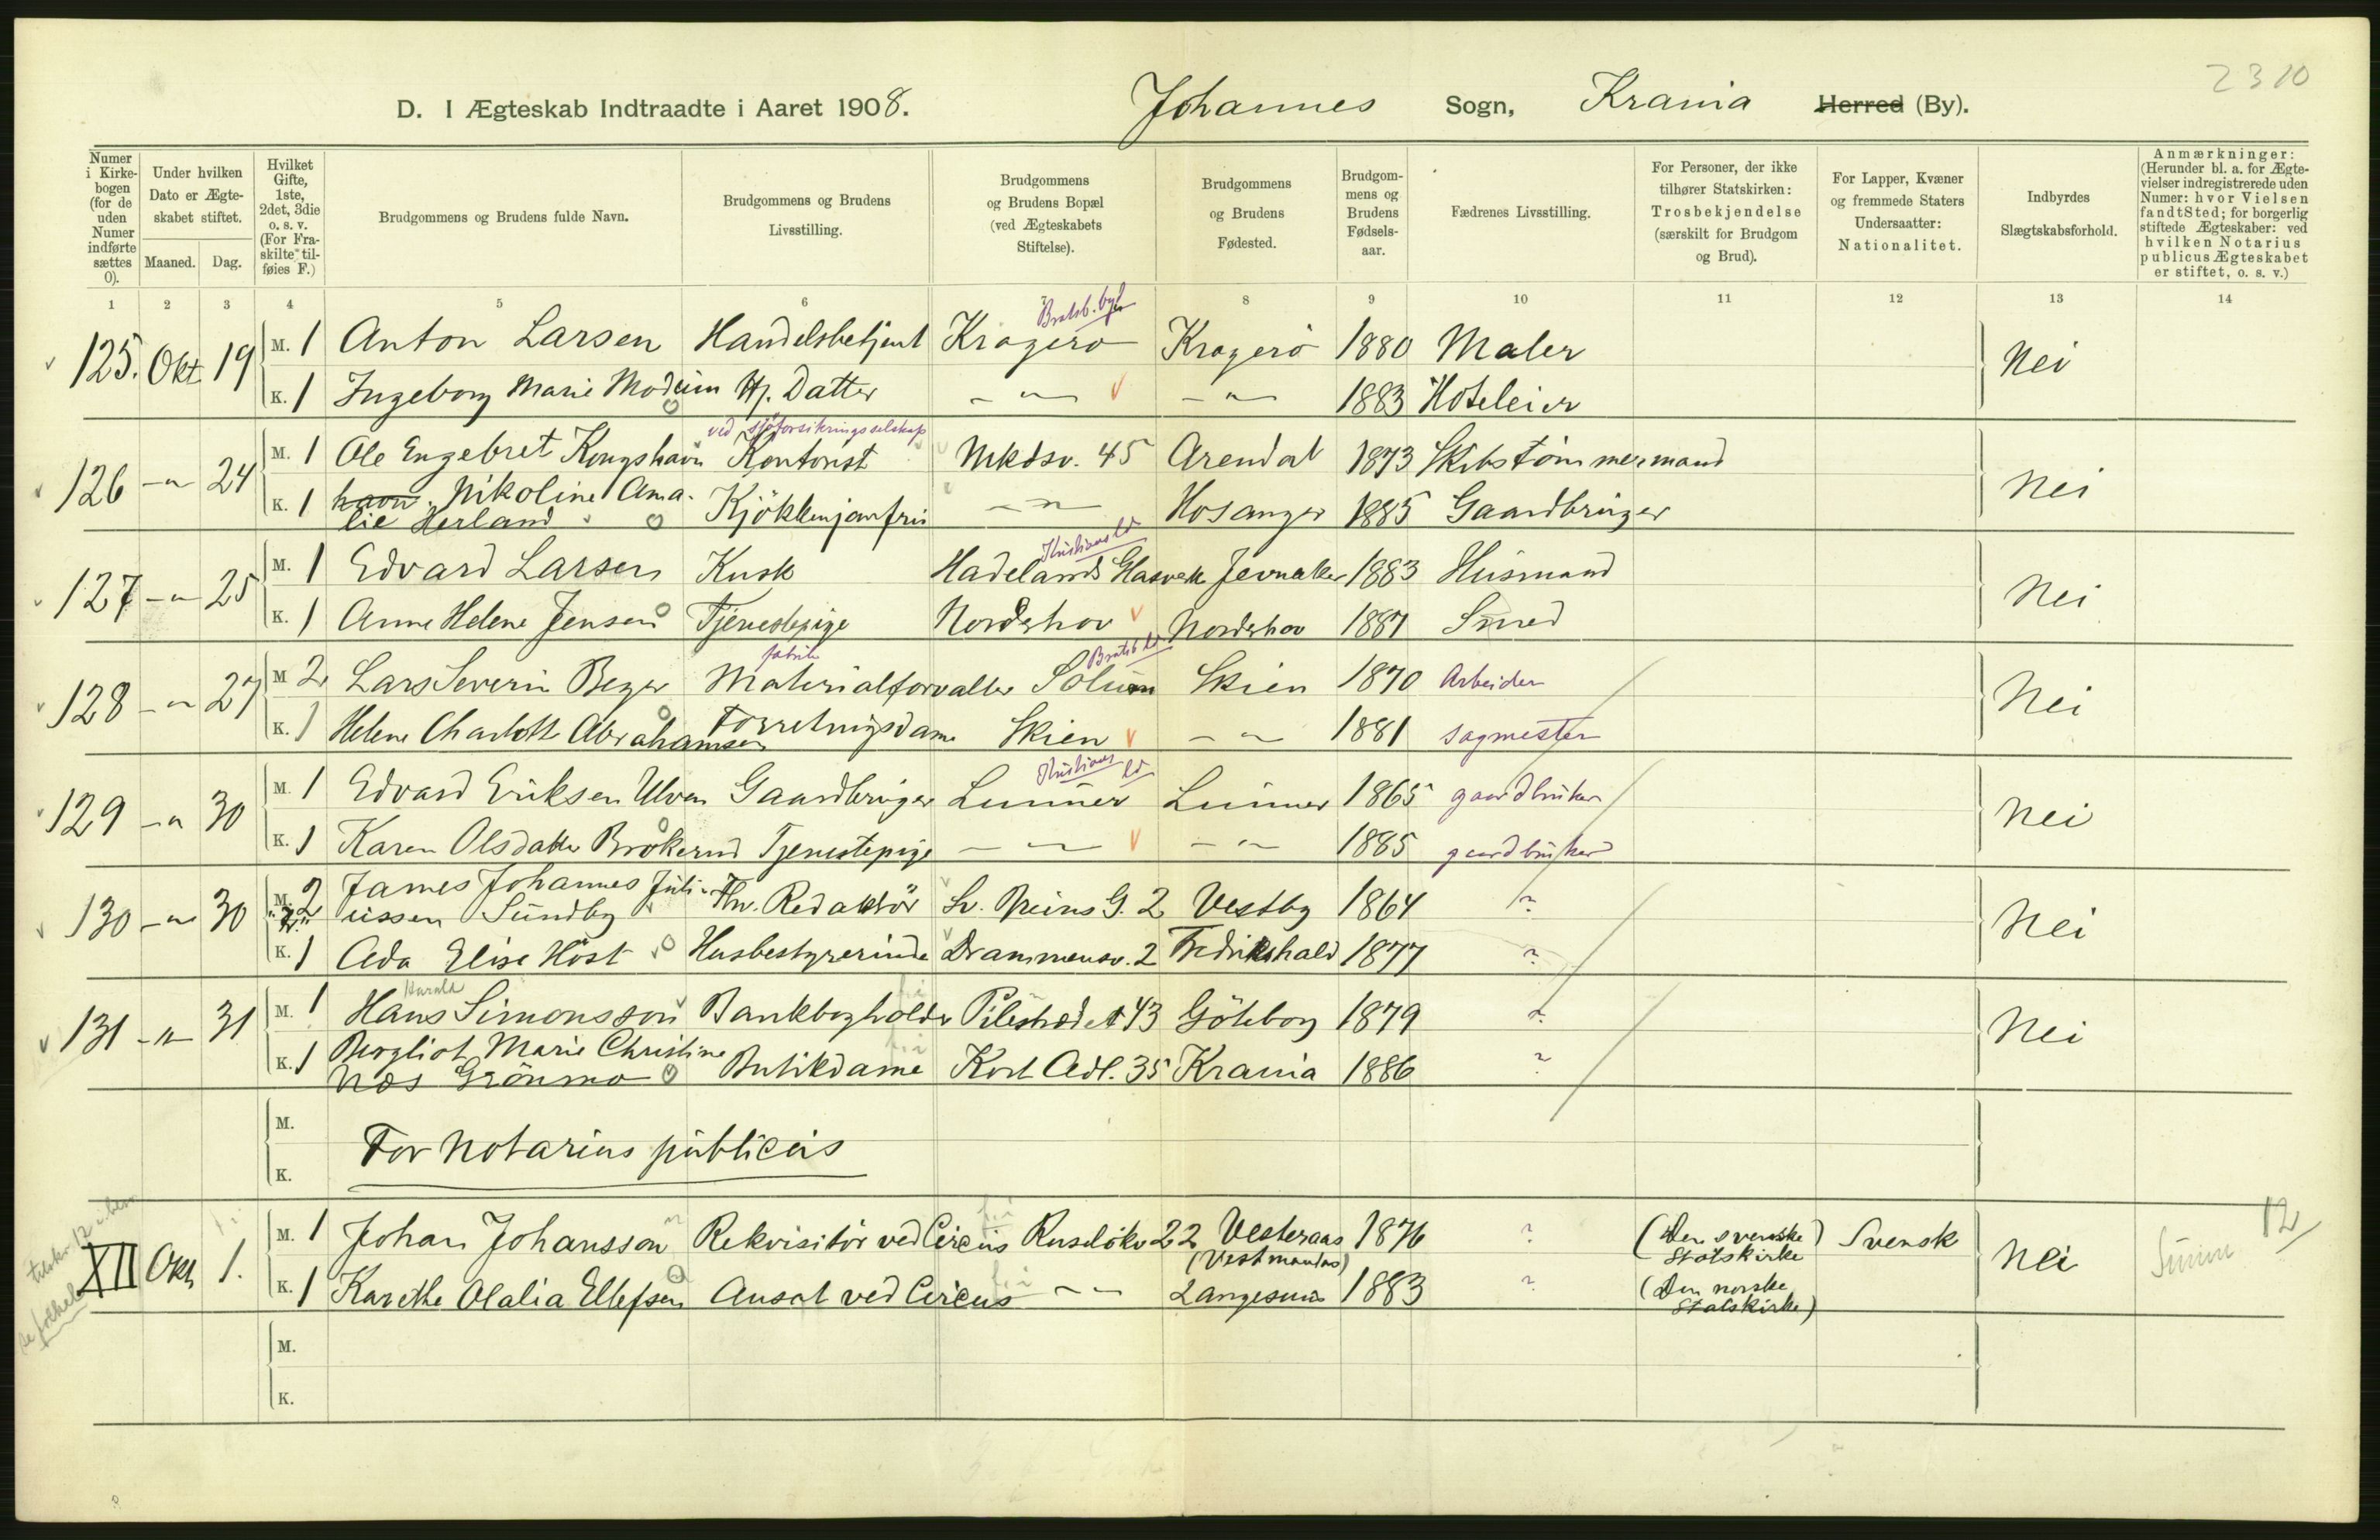 2310
D. I Ægteskab Indtraadte i Aaret 1908. Johannes Sogn, Krania Herred (By).
Numer i Kirkebogen (for de uden Numer indførte sættes 0).
Under hvilken Dato er Ægteskabet stiftet.
Maaned. Dag.
Hvilket Gifte, 1ste, 2det, 3die o. s. v. (For Fraskilte tilføies F.)
Brudgommens og Brudens fulde Navn.
Brudgommens og Brudens Livsstilling.
Brudgommens og Brudens Bopæl (ved Ægteskabets Stiftelse).
Brudgommens og Brudens Fødested.
Brudgommens og Brudens Fødselsaar.
Fædrenes Livsstilling.
For Personer, der ikke tilhører Statskirken: Trosbekjendelse (særskilt for Brudgom og Brud).
For Lapper, Kvæner og fremmede Staters Undersaatter: Nationalitet.
Indbyrdes Slægtskabsforhold.
Anmærkninger: (Herunder bl. a. for Ægtevielser indregistrerede uden Numer: hvor Vielsen fandt Sted; for borgerlig stiftede Ægteskaber: ved hvilken Notarius publicus Ægteskabet er stiftet, o. s. v.)
1 2 3 4 5 6 7 8 9 10 11 12 13 14
Bratsb. byf
125. Okt. 19 M. 1 Anton Larsen Handelsbetjent Kragerø Kragerö 1880 Maler Nei
K. 1 Ingeborg Marie Modeim Hj. Datter – " – – " – 1883 Hoteleier
ved sjöforsikringsselskap
126 – " – 24 M. 1 Ole Engebret Kongshavn Kontorist Mkdsv. 45 Arendal 1873 Skibstømmermand Nei
K. 1 havn. Nikoline Ama-
lie Herland Kjökkenjomfru – " – Hosanger 1885 Gaardbruger
Kristians
127 – " – 25 M. 1 Edvard Larsen Kusk Hadelands Glasverk Jevnaker 1883 Husmand Nei
K. 1 Anne Helene Jensen Tjenestepige Norderhov Norderhov 1887 Smed
fabrik Bratsb.
128 – " – 27 M. 2 Lars Severin Beger Materialforvalter Solum Skien 1870 Arbeider Nei
K. 1 Helene Charlotte Abrahamsen Forretningsdame Skien – " – 1881 sagmester
Kristians
129 – " – 30 M. 1 Edvard Eriksen Ulven Gaardbruger Lunner Lunner 1865 gaardbruker Nei
K. 1 Karen Olsdatter Bråkerud Tjenestepige – " – – " – 1885 gaardbruker
130 – " – 30 M. 2 James Johannes Juli-
ussen Sundby Fhv. Redaktör 2 Vestby 1864 ? Nei
K. 1 Ada Elise Höst Husbestyrerinde Drammensv. 2 Fredrikshald 1877 ?
Harald
131 – " – 31 M. 1 Hans Simonsson Bankbogholder Pilestrædet 43 Göteborg 1879 ? Nei
K. 1 Bergliot Marie Christine
Næs Grönmo Butikdame Kort Adl. 35 Krania 1886 ?
M.
For Notarius publicus
K.
XII Okt. 1. M. 1 Johan Johansson Rekvisitör ved Circus Ruselökv 22 Vesteraas 1876 ? (Den svenske Statskirke) Svensk Nei 12
(Vestmanlas)
K. 1 Karethe Olalia Ellefsen Ansat ved Circus – " – Langesund 1883 ? (Den norske Statskirke)
M.
K.